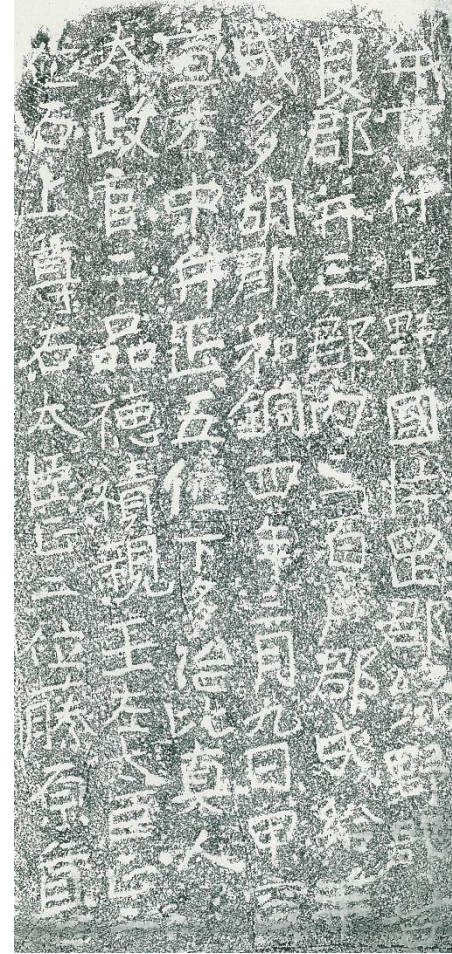 弁官符上野國片罡郡緑野郡
良郡并三郡内三百戸郡成給羊
成多胡郡和銅四年三月九日甲寅
宣左中弁正五位下多治比真人
太政官二品穂積親王左太臣正
位石上尊右太臣正二位藤原尊